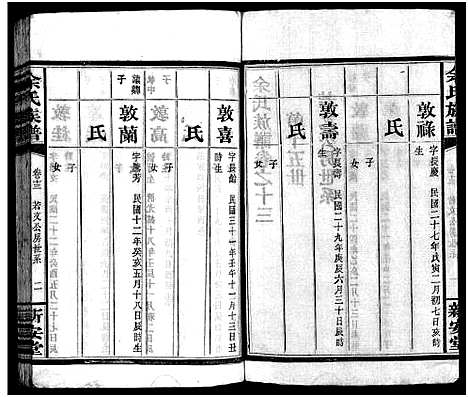 余氏族譜
新安堂
敦祿
字長慶 民國二十七年戊寅二月初七日辰時
生
氏
子
女
敦壽
字長壽 民國二十九年庚辰六月三十日辰時
生
氏
子
女
敦喜
民國三十一年壬午十一月十三日丑
時生
氏
子
敦蘭
民國十二年癸亥五月十八日辰時生
氏
子
女
余氏族譜
卷十三 若文公房世系
二
新安堂